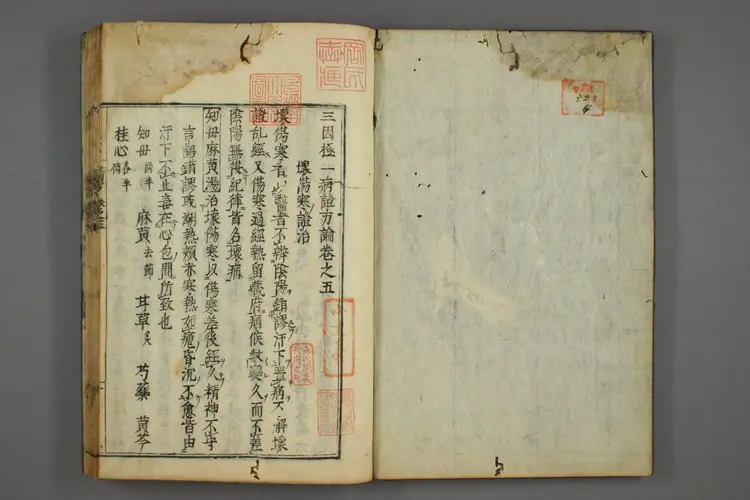 三因極一病證方論卷之五
壞傷寒證治
壞傷寒者以醫者不辨陰陽錯謬汗下病不解壞
證乱經又傷寒過經熱留藏府病候數變久而不差
陰陽無復紀律皆名壞病
知母麻黄湯治壞傷寒以傷寒差後經久精神不守
言語錯謬或潮熱頰赤寒熱如瘧昏沉不愈皆由
汗下不止毒在心包間所致也
知母兩半 麻黄去節 甘草炙 芍藥 黄芩
桂心各半兩